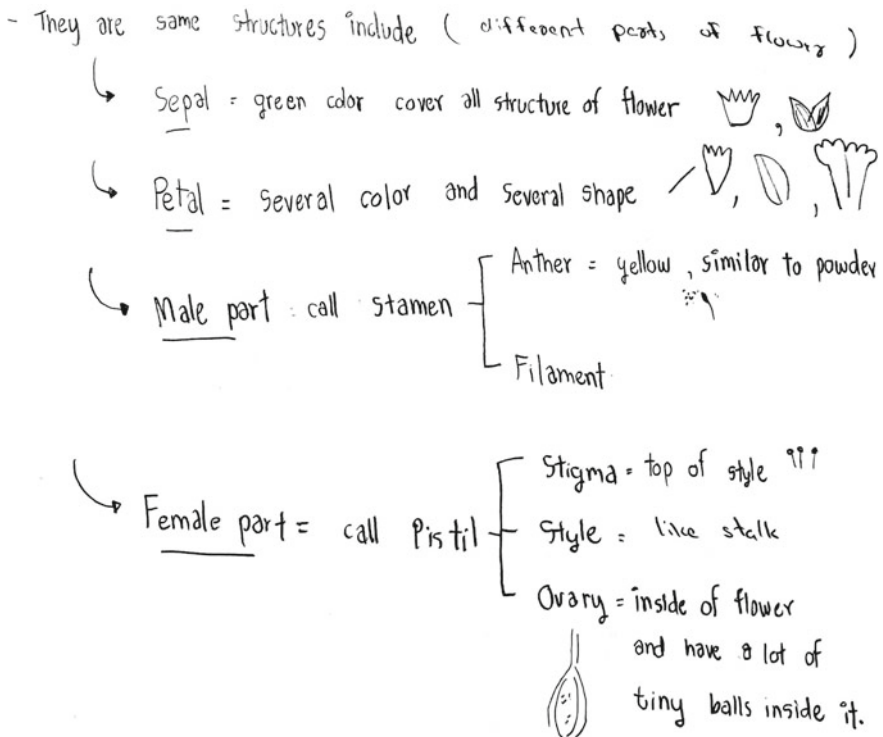 - They are same structures include ( different parts of flower )
Sepal = green color cover all structure of flower
Petal = Several color and several shape
Male part : call stamen
Anther = yellow , similar to powder
Filament
Female part = call Pistil
Stigma = top of style
Style = like stalk
Ovary = inside of flower
and have a lot of
tiny balls inside it.